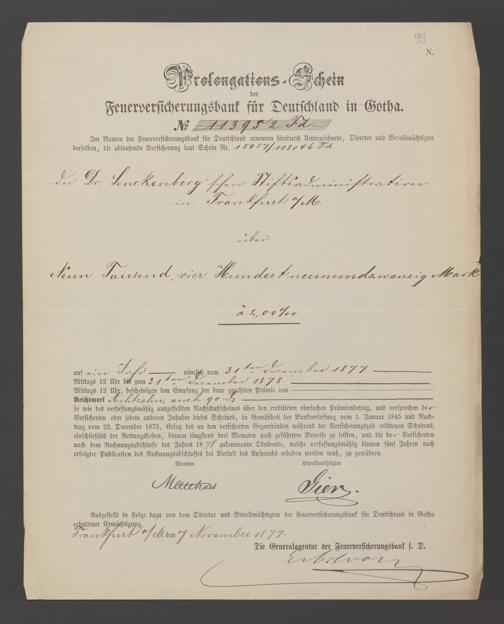 93
N.
Prolongations-Schein
der
Feuerversicherungsbank für Deutschland in Gotha.
№ 113952 Fd.
Im Namen der Feuerversicherungsbank für Deutschland erneuern hierdurch Unterzeichnete, Director und Bevollmächtigter
derselben, die ablaufende Versicherung laut Schein Nr. 15057/108046 Fd
der Dr. Senckenberg'schen Stiftsadministration
in Frankfurt a/M.
über
Neun Tausend, vier Hundertneunundzwanzig Mark
à 2,00‰
auf ein Jahr nämlich vom 31ten December 1877
Mittags 12 Uhr bis zum 31ten December 1878
Mittags 12 Uhr, bescheinigen den Empfang der baar gezahlten Prämie von
Reichsmark Achtzehn, auch 90 ₰
so wie des verfassungsmäßig ausgestellten Nachschußscheines über den creditirten vierfachen Prämienbetrag, und versprechen der
Versicherten oder jedem anderen Inhaber dieses Scheines, in Gemäßheit der Bankverfassung vom 1. Januar 1845 und Nach-
trag vom 22. December 1873, Ersatz des an den versicherten Gegenständen während der Versicherungszeit erlittenen Schadens,
einschließlich der Rettungskosten, binnen längstens drei Monaten nach geführtem Beweise zu leisten, und die der Versicherten
nach dem Rechnungsabschlusse des Jahres 1878 zukommende Dividende, welche verfassungsmäßig binnen fünf Jahren nach
erfolgter Publication des Rechnungsabschlusses bei Verlust des Anspruchs erhoben werden muß, zu gewähren.
Director Bevollmächtigter
Ausgestellt in Folge dazu von dem Director und Bevollmächtigten der Feuerversicherungsbank für Deutschland in Gotha
erhaltener Ermächtigung.
Frankfurt a/M den 7 November 1877.
Die Generalagentur der Feuerversicherungsbank f. D.